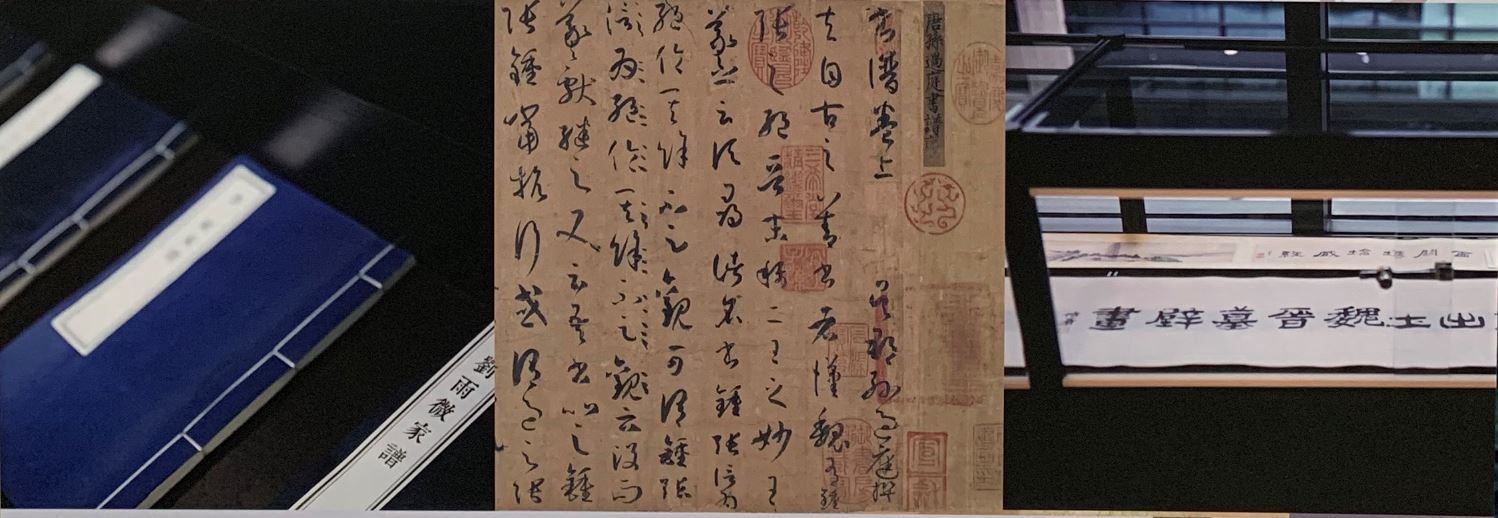 劉雨微家譜
唐孫過庭書譜
書譜卷上 吳郡孫過庭撰
夫自古之善書者漢魏有鍾
張之絕晉末稱二王之妙王
羲之云頃尋諸名書鍾張信為
絕倫其餘不足觀可謂鍾張
信為絕倫其餘不足觀云沒而
羲獻繼之又云吾書比之鍾
張鍾當抗行或謂過之張
出土魏晉墓壁畫